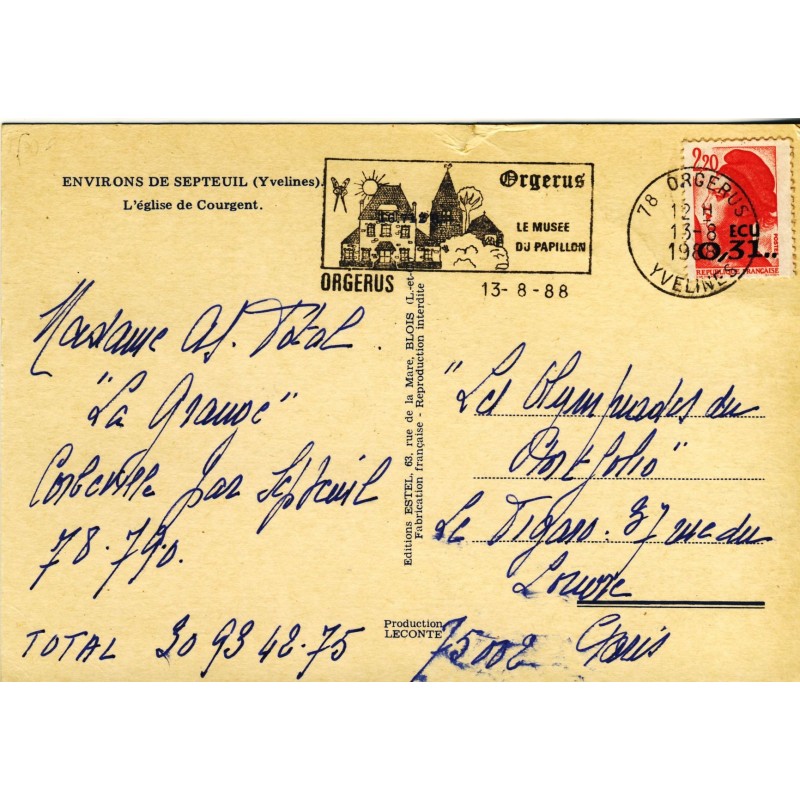 ENVIRONS DE SEPTEUIL (Yvelines).
L'église de Courgent.
Orgerus
LE MUSEE
DU PAPILLON
ORGERUS
13-8-88
78 ORGERUS
12 H
13-8
1988
YVELINES
2,20
ECU
0,31..
POSTES
REPUBLIQUE FRANÇAISE
Madame Total
"La Grange"
Corbeville par Septeuil
78.790.
TOTAL 30 93 42.75
Editions ESTEL, 63, rue de la Mare, BLOIS (L.-et-
Fabrication française - Reproduction interdite
Production
LECONTE
"Les Olympiades du
Portfolio"
Le Figaro. 37 rue du
Louvre
75002 Paris